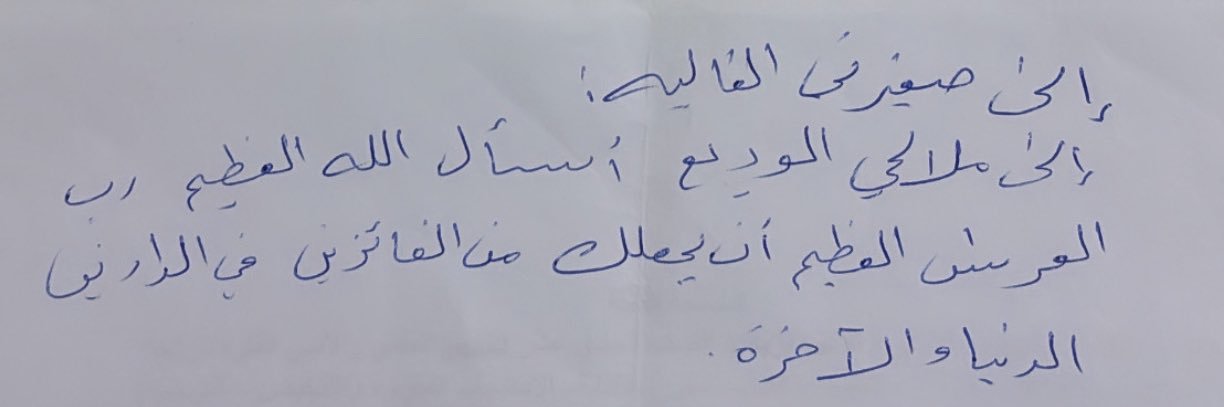 إلى صغيرتى الغاليه:
إلى ملاكي الوديع أسأل الله العظيم رب
العرش العظيم أن يجعلك من الفائزين في الدارين
الدنيا والآخرة.